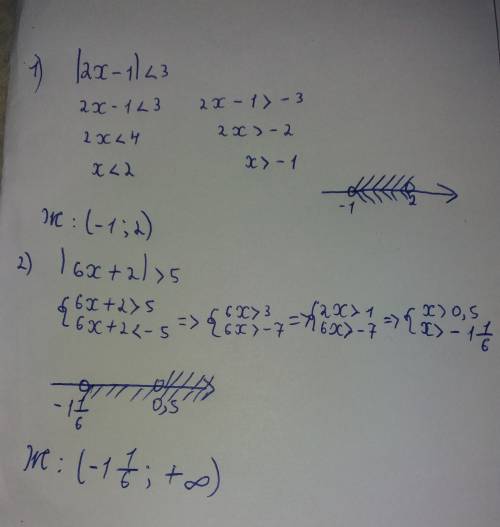 1) |2x-1|<3
2x-1<3 2x-1>-3
2x<4 2x>-2
x<2 x>-1
-1 2
Ж: (-1; 2)
2) |6x+2|>5
{6x+2>5 => {6x>3 => {2x>1 => {x>0,5
{6x+2<-5 => {6x>-7 => {6x>-7 => {x>-1 1/6
-1 1/6 0,5
Ж: (-1 1/6; +∞)